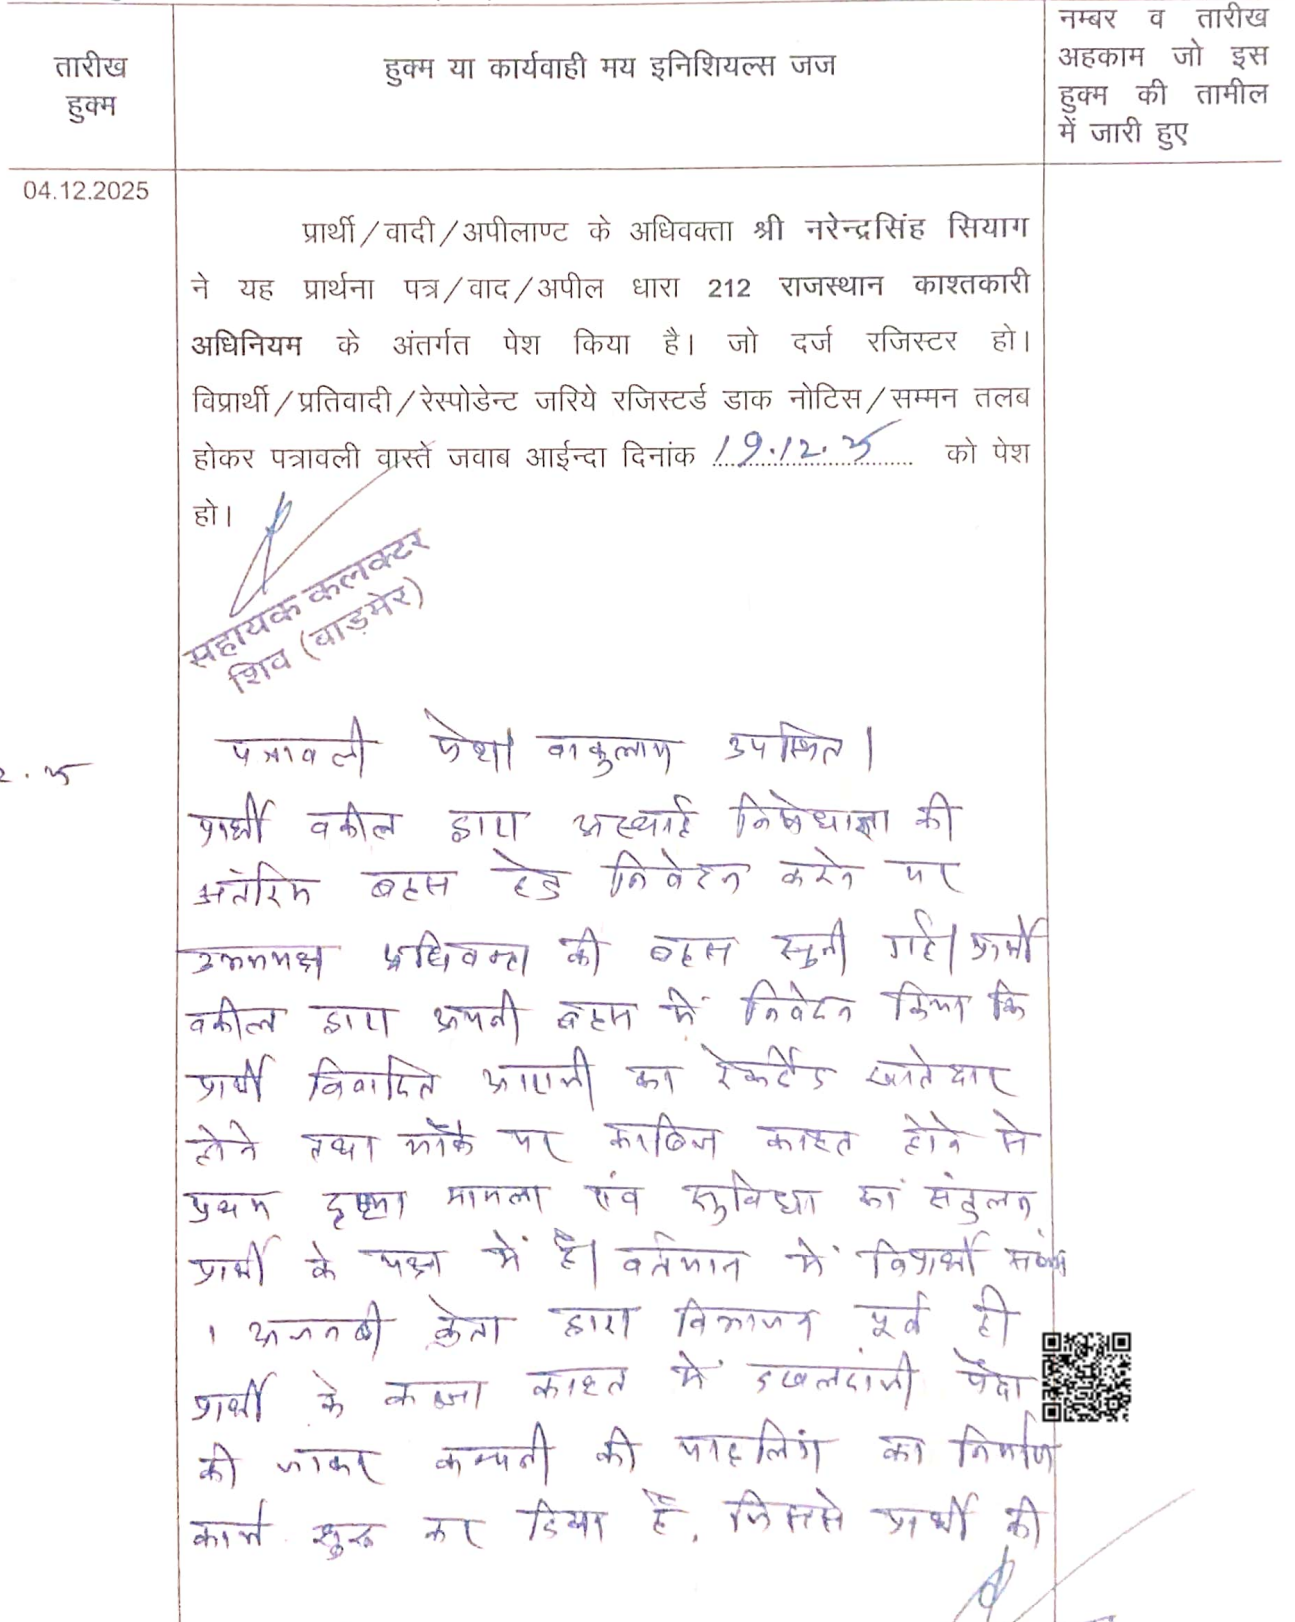 तारीख
हुक्म
हुक्म या कार्यवाही मय इनिशियल्स जज
नम्बर व तारीख
अहकाम जो इस
हुक्म की तामील
में जारी हुए
04.12.2025
प्रार्थी/वादी/अपीलाण्ट के अधिवक्ता श्री नरेन्द्रसिंह सियाग
ने यह प्रार्थना पत्र/वाद/अपील धारा 212 राजस्थान काश्तकारी
अधिनियम के अंतर्गत पेश किया है। जो दर्ज रजिस्टर हो।
विप्रार्थी/प्रतिवादी/रेस्पोडेन्ट जरिये रजिस्टर्ड डाक नोटिस/सम्मन तलब
होकर पत्रावली वास्ते जवाब आईन्दा दिनांक 19.12.25 को पेश
हो।
सहायक कलक्टर
शिव (बाड़मेर)
पत्रावली पेश। वकुलाय उपस्थित।
प्रार्थी वकील द्वारा अस्थाई निषेधाज्ञा की
अंतरिम बहस हेतु निवेदन करने पर
उभयपक्ष अधिवक्ता की बहस सुनी गई। प्रार्थी
वकील द्वारा अपनी बहस में निवेदन किया कि
प्रार्थी विवादित आराजी का रेकर्डेड खातेदार
होने तथा मौके पर काबिज काश्त होने से
प्रथम दृष्टया मामला एंव सुविधा का संतुलन
प्रार्थी के पक्ष में है। वर्तमान में विप्रार्थी
1 अजनबी क्रेता द्वारा विभाजन पूर्व ही
प्रार्थी के कब्जा काश्त में दखलदांजी पैदा
की जाकर कम्पनी की पाइलिंग का निर्माण
कार्य शुरू कर दिया है, जिससे प्रार्थी की